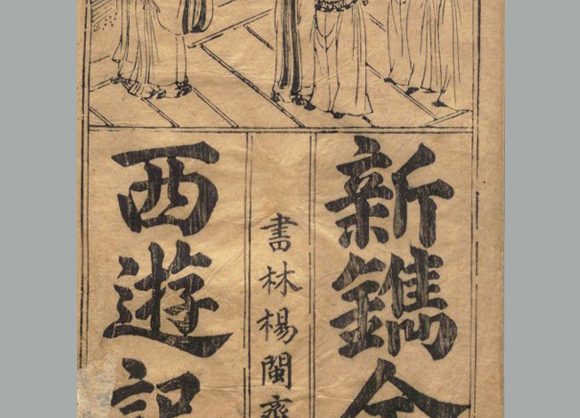 新鐫全
書林楊閩齋
西遊記